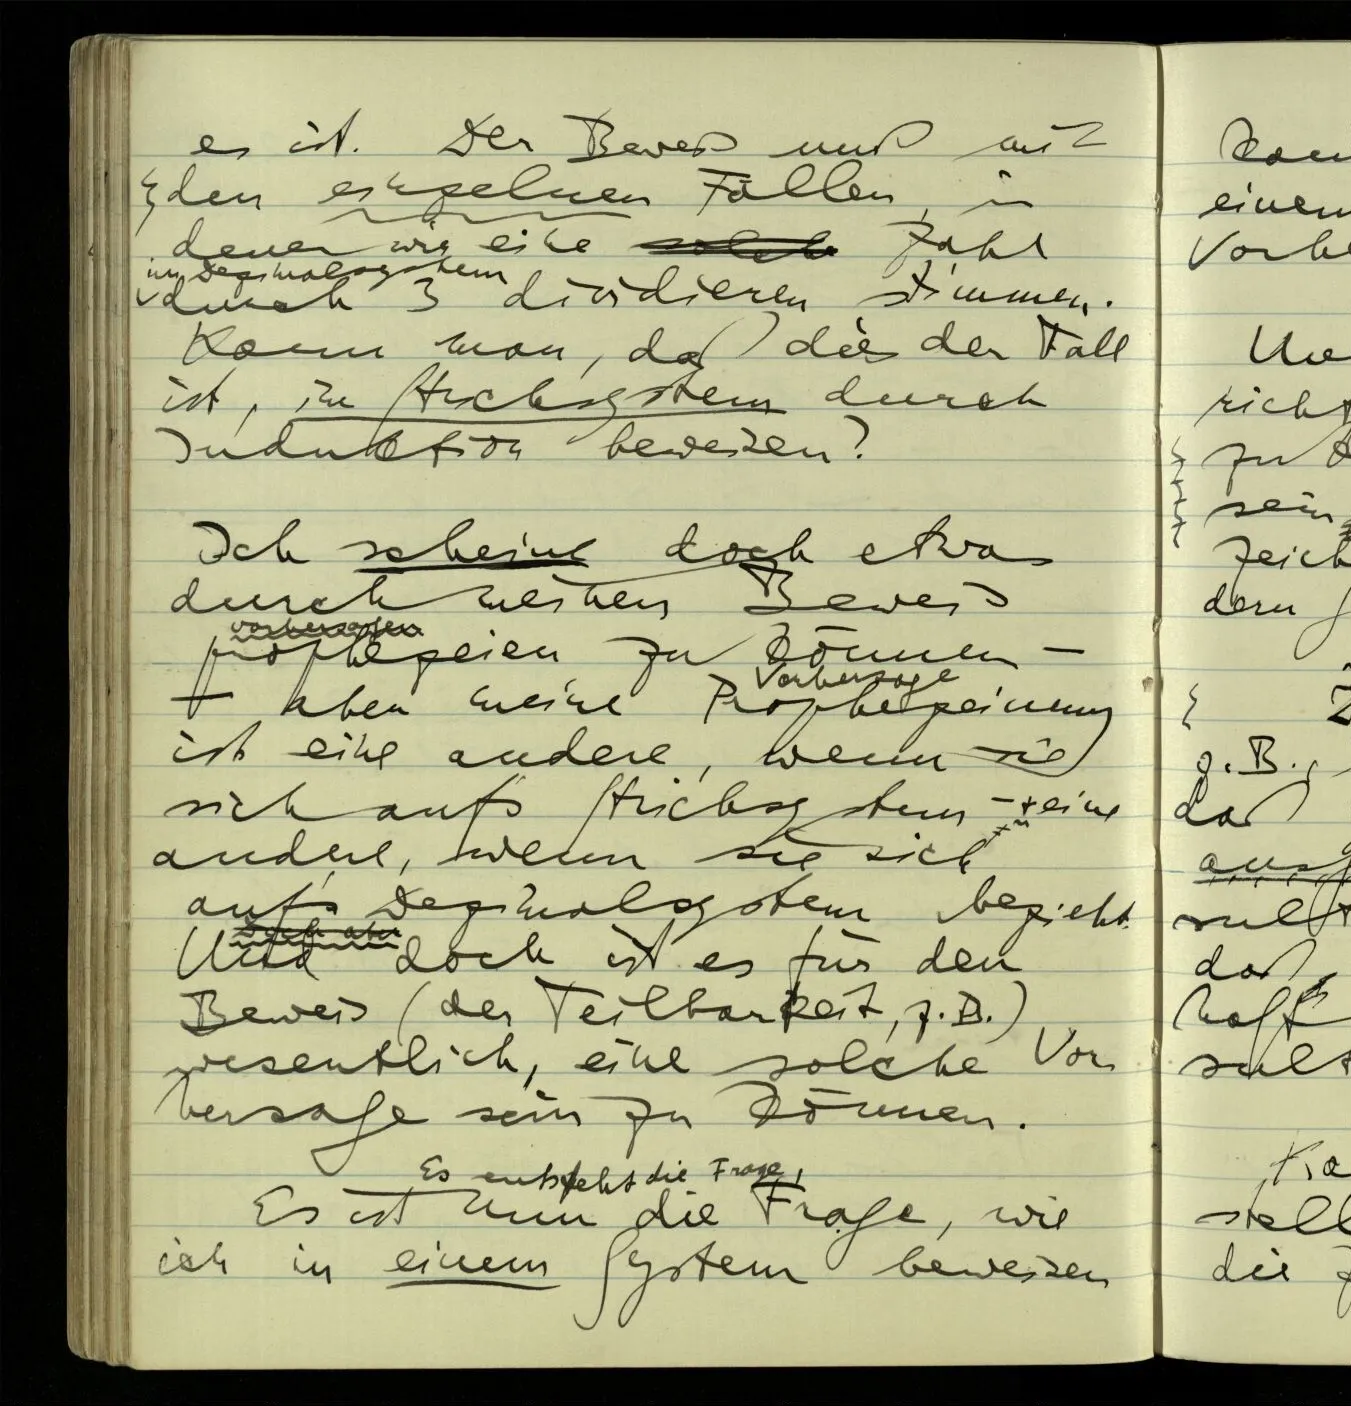 es ist. Der Beweis muß mit
den einzelnen Fällen, in
denen wir eine solche Zahl
im Dezimalsystem
durch 3 dividieren stimmen.
Kann man, daß dies der Fall
ist, im Strichsystem durch
Induktion beweisen?
Ich scheine doch etwas
durch meinen Beweis
vorhersagen
prophezeien zu können –
Vorhersage
aber meine Prophezeiung
ist eine andere, wenn sie
sich aufs Strichsystem – eine
andere, wenn sie sich
aufs Dezimalsystem bezieht.
Doch aber
Und doch ist es für den
Beweis (der Teilbarkeit, z.B.)
wesentlich, eine solche Vor
hersage sein zu können.
Es entsteht die Frage,
Es ist nun die Frage, wie
ich in einem System beweisen
einem
richt
sein
dern
z.B.,
daß
daß
die